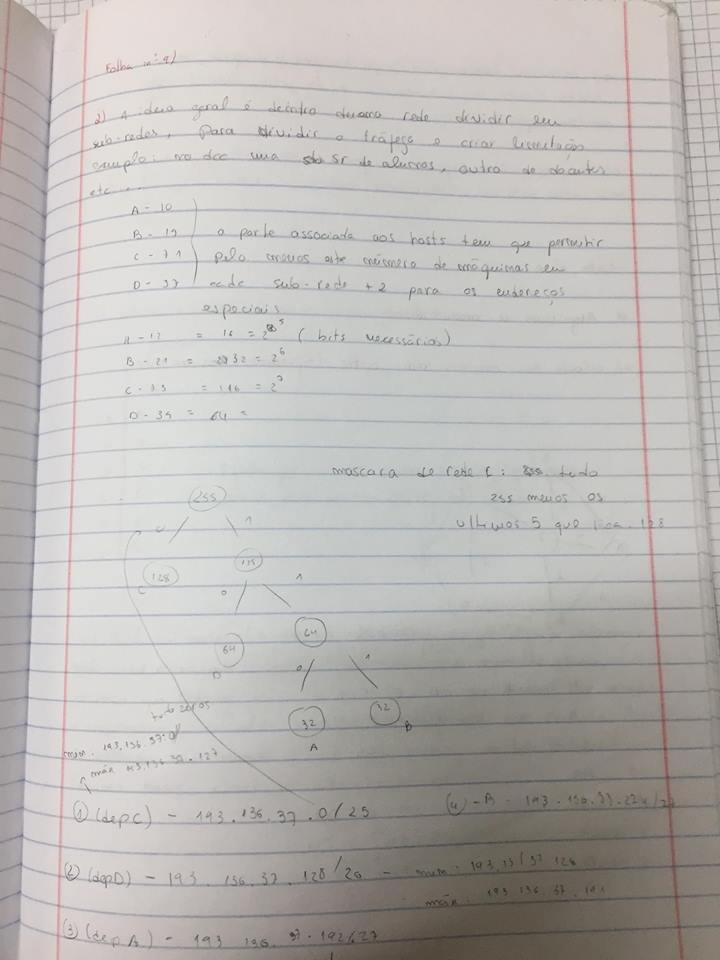 Folha nº 9)
2) A ideia geral é dentro duma rede dividir em
sub-redes, Para dividir o tráfego e criar limitação
exemplo: no dcc uma SR de alunos, outra de docentes
etc...
A - 10
B - 19 a parte associada aos hosts tem que permitir
C - 71 pelo menos este número de máquinas em
D - 37 cada sub-rede +2 para os endereços
especiais
A - 12 = 16 = 2 5 (bits necessários)
B - 21 = 32 = 2 6
C - 73 = = 2 7
D - 39 = 64 =
mascara de rede C: tudo
255 menos os
ultimos que fica 128
255
0 1
128
C
0 1
64 64
D
0 1
32 32
A B
min. 193.136.37.0
máx 193.136.37.127
① (dep C) - 193.136.37.0/25 (4) - B - 193.136.37.224/27
② (dep D) - 193.136.37.128/26 - min. 193.137.37.128
máx. 193.136.37.191
(3) (dep A) - 193.136.37.192/27